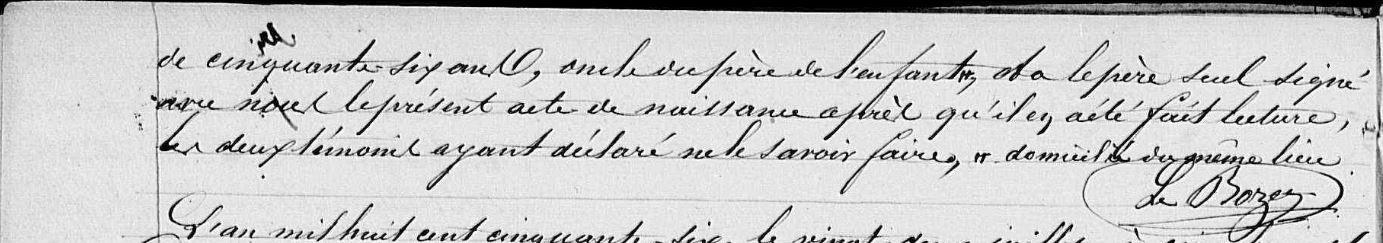 de cinquante-six ans, oncle du père de l'enfant #, et a le père seul signé
avec nous le présent acte de naissance après qu'il en a été fait lecture,
les deux témoins ayant déclaré ne le savoir faire, # domicilié du même lieu
Le Bozec
L'an mil huit cent cinquante-six, le vingt